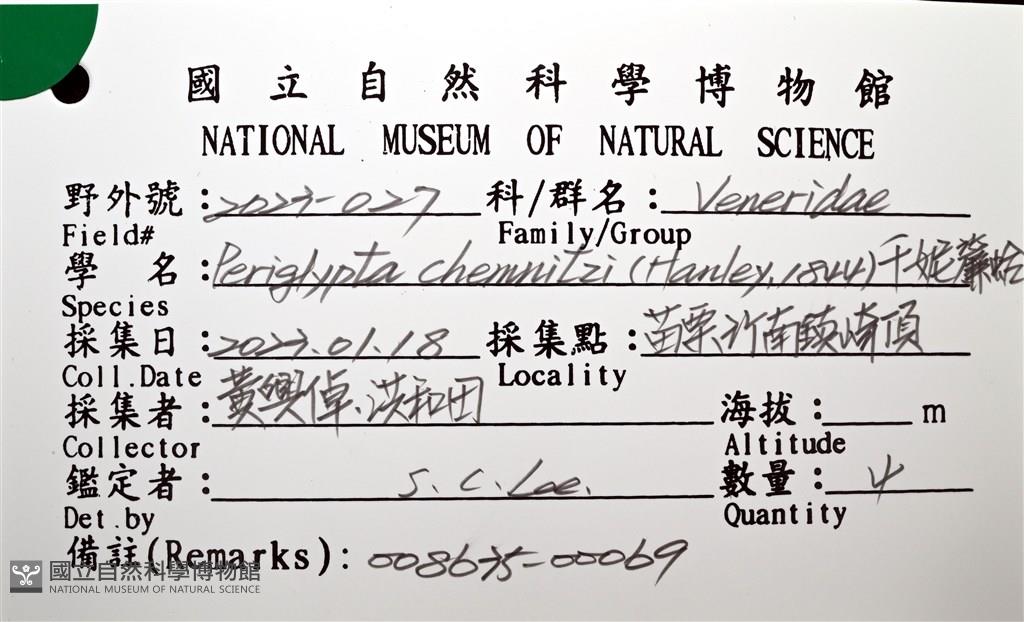 國立自然科學博物館
NATIONAL MUSEUM OF NATURAL SCIENCE
野外號：2023-027 科/群名：Veneridae
Field# Family/Group
學 名：Periglypta chemnitzi (Hanley, 1844) 千妮簾蛤
Species
採集日：2023.01.18 採集點：苗栗竹南鎮崎頂
Coll.Date Locality
採集者：黃興倬、洪和田 海拔：m
Collector Altitude
鑑定者：S. C. Lee. 數量：4
Det.by Quantity
備註(Remarks)：008675-00069
國立自然科學博物館
NATIONAL MUSEUM OF NATURAL SCIENCE